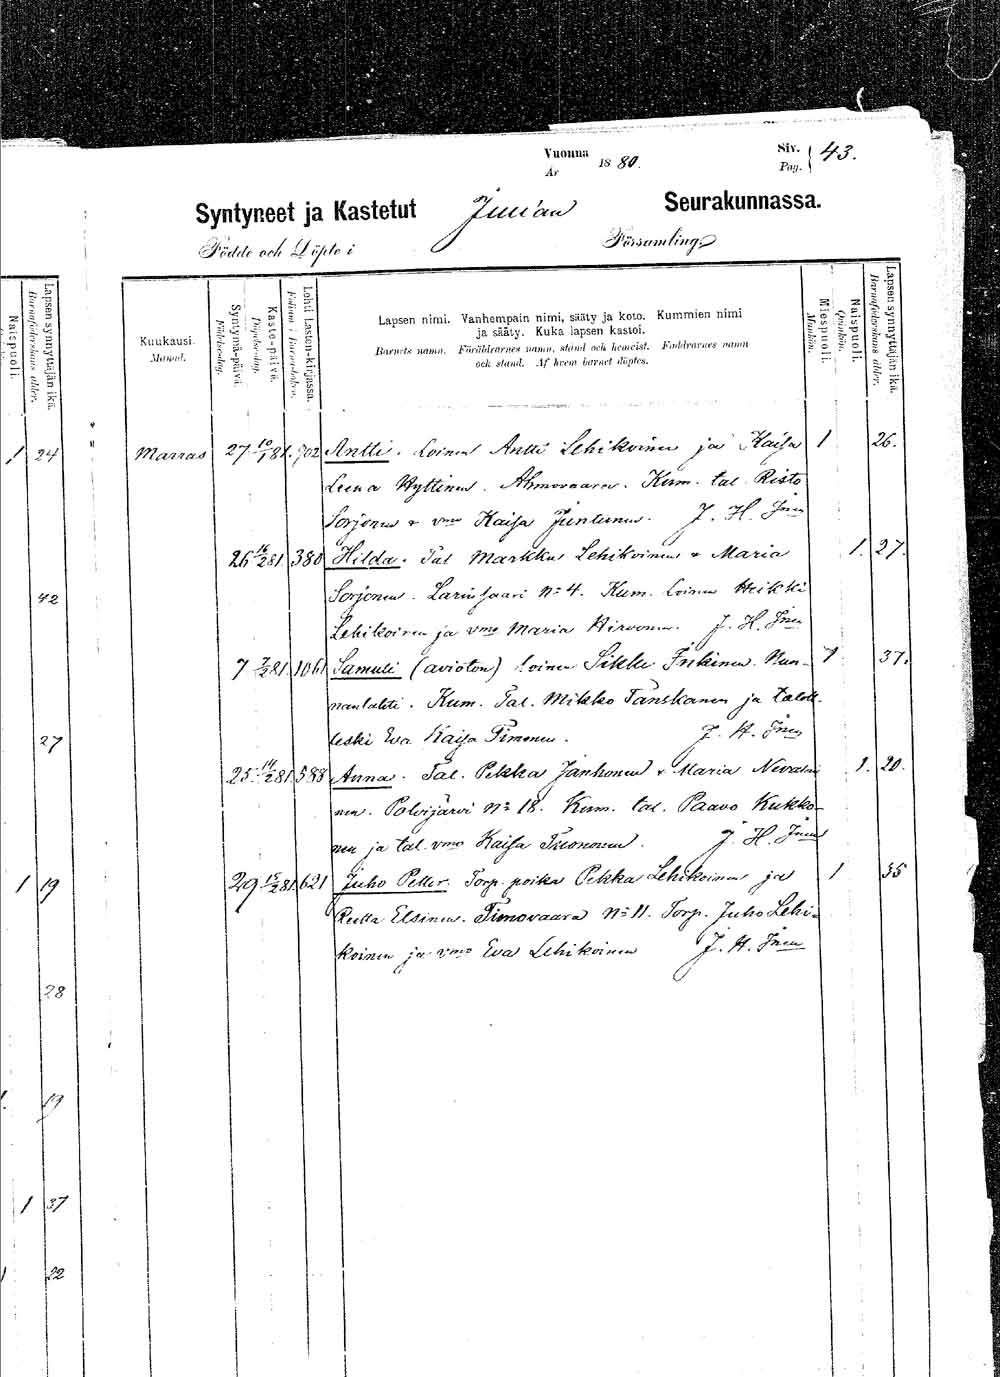 Vuonna 1880. Siv. 43.
År Pag.
Syntyneet ja Kastetut Juuan Seurakunnassa.
Födde och Döpte i Församling
Naispuoli.
Lapsen synnyttäjän ikä.
Barnaföderskans ålder.
Kuukausi.
Månad.
Syntymä-päivä.
Födelsedag.
Kaste-päivä.
Döpelsedag.
Lehti Lasten-kirjassa.
Folium i Barnaboken.
Lapsen nimi. Vanhempain nimi, sääty ja koto. Kummien nimi
ja sääty. Kuka lapsen kastoi.
Barnets namn. Föräldrarnes namn, stånd och hemvist. Faddrarnes namn
och stånd. Af hvem barnet döptes.
Miespuoli.
Mankön.
Naispuoli.
Qvinkön.
Lapsen synnyttäjän ikä.
Barnaföderskans ålder.
1 24 Marras 27 10/1 81. 702 Antti. Loinen Antti Lehikoinen ja Kaisa 1 26.
Leena Hyttinen. Ahmovaara. Kum. tal. Risto
Sorjonen & vmo Kaisa Juntunen. J. H. Jnen
26 16/2 81 380 Hilda. Tal Markku Lehikoinen & Maria 1. 27.
42 Sorjonen. Larinsaari No 4. Kum. Loinen Heikki
Lehikoinen ja vmo Maria Hirvonen. J. H. Jnen
7 7/2 81. 1061 Samuli (aviötön) loinen Inkinen. Nun- 1 37.
nanlahti. Kum. Tal. Mikko Tanskanen ja
27 leski Eva Kaisa Timonen. J. H. Jnen
25 14/2 81 588 Anna. Tal. Pekka Janhonen & Maria Nevalai 1. 20.
nen. Polvijärvi No 18. Kum. tal. Paavo Kukko-
nen ja tal. vmo Kaisa J. H. Jnen
1 19 29 15/2 81. 621 Juho Petter. Torp. poika Pekka Lehikoinen ja 1 35
Reetta Elsinen. Timovaara No 11. Torp. Juho Lehi-
koinen ja vmo Eva Lehikoinen J. H. Jnen
28
19
1 37
22